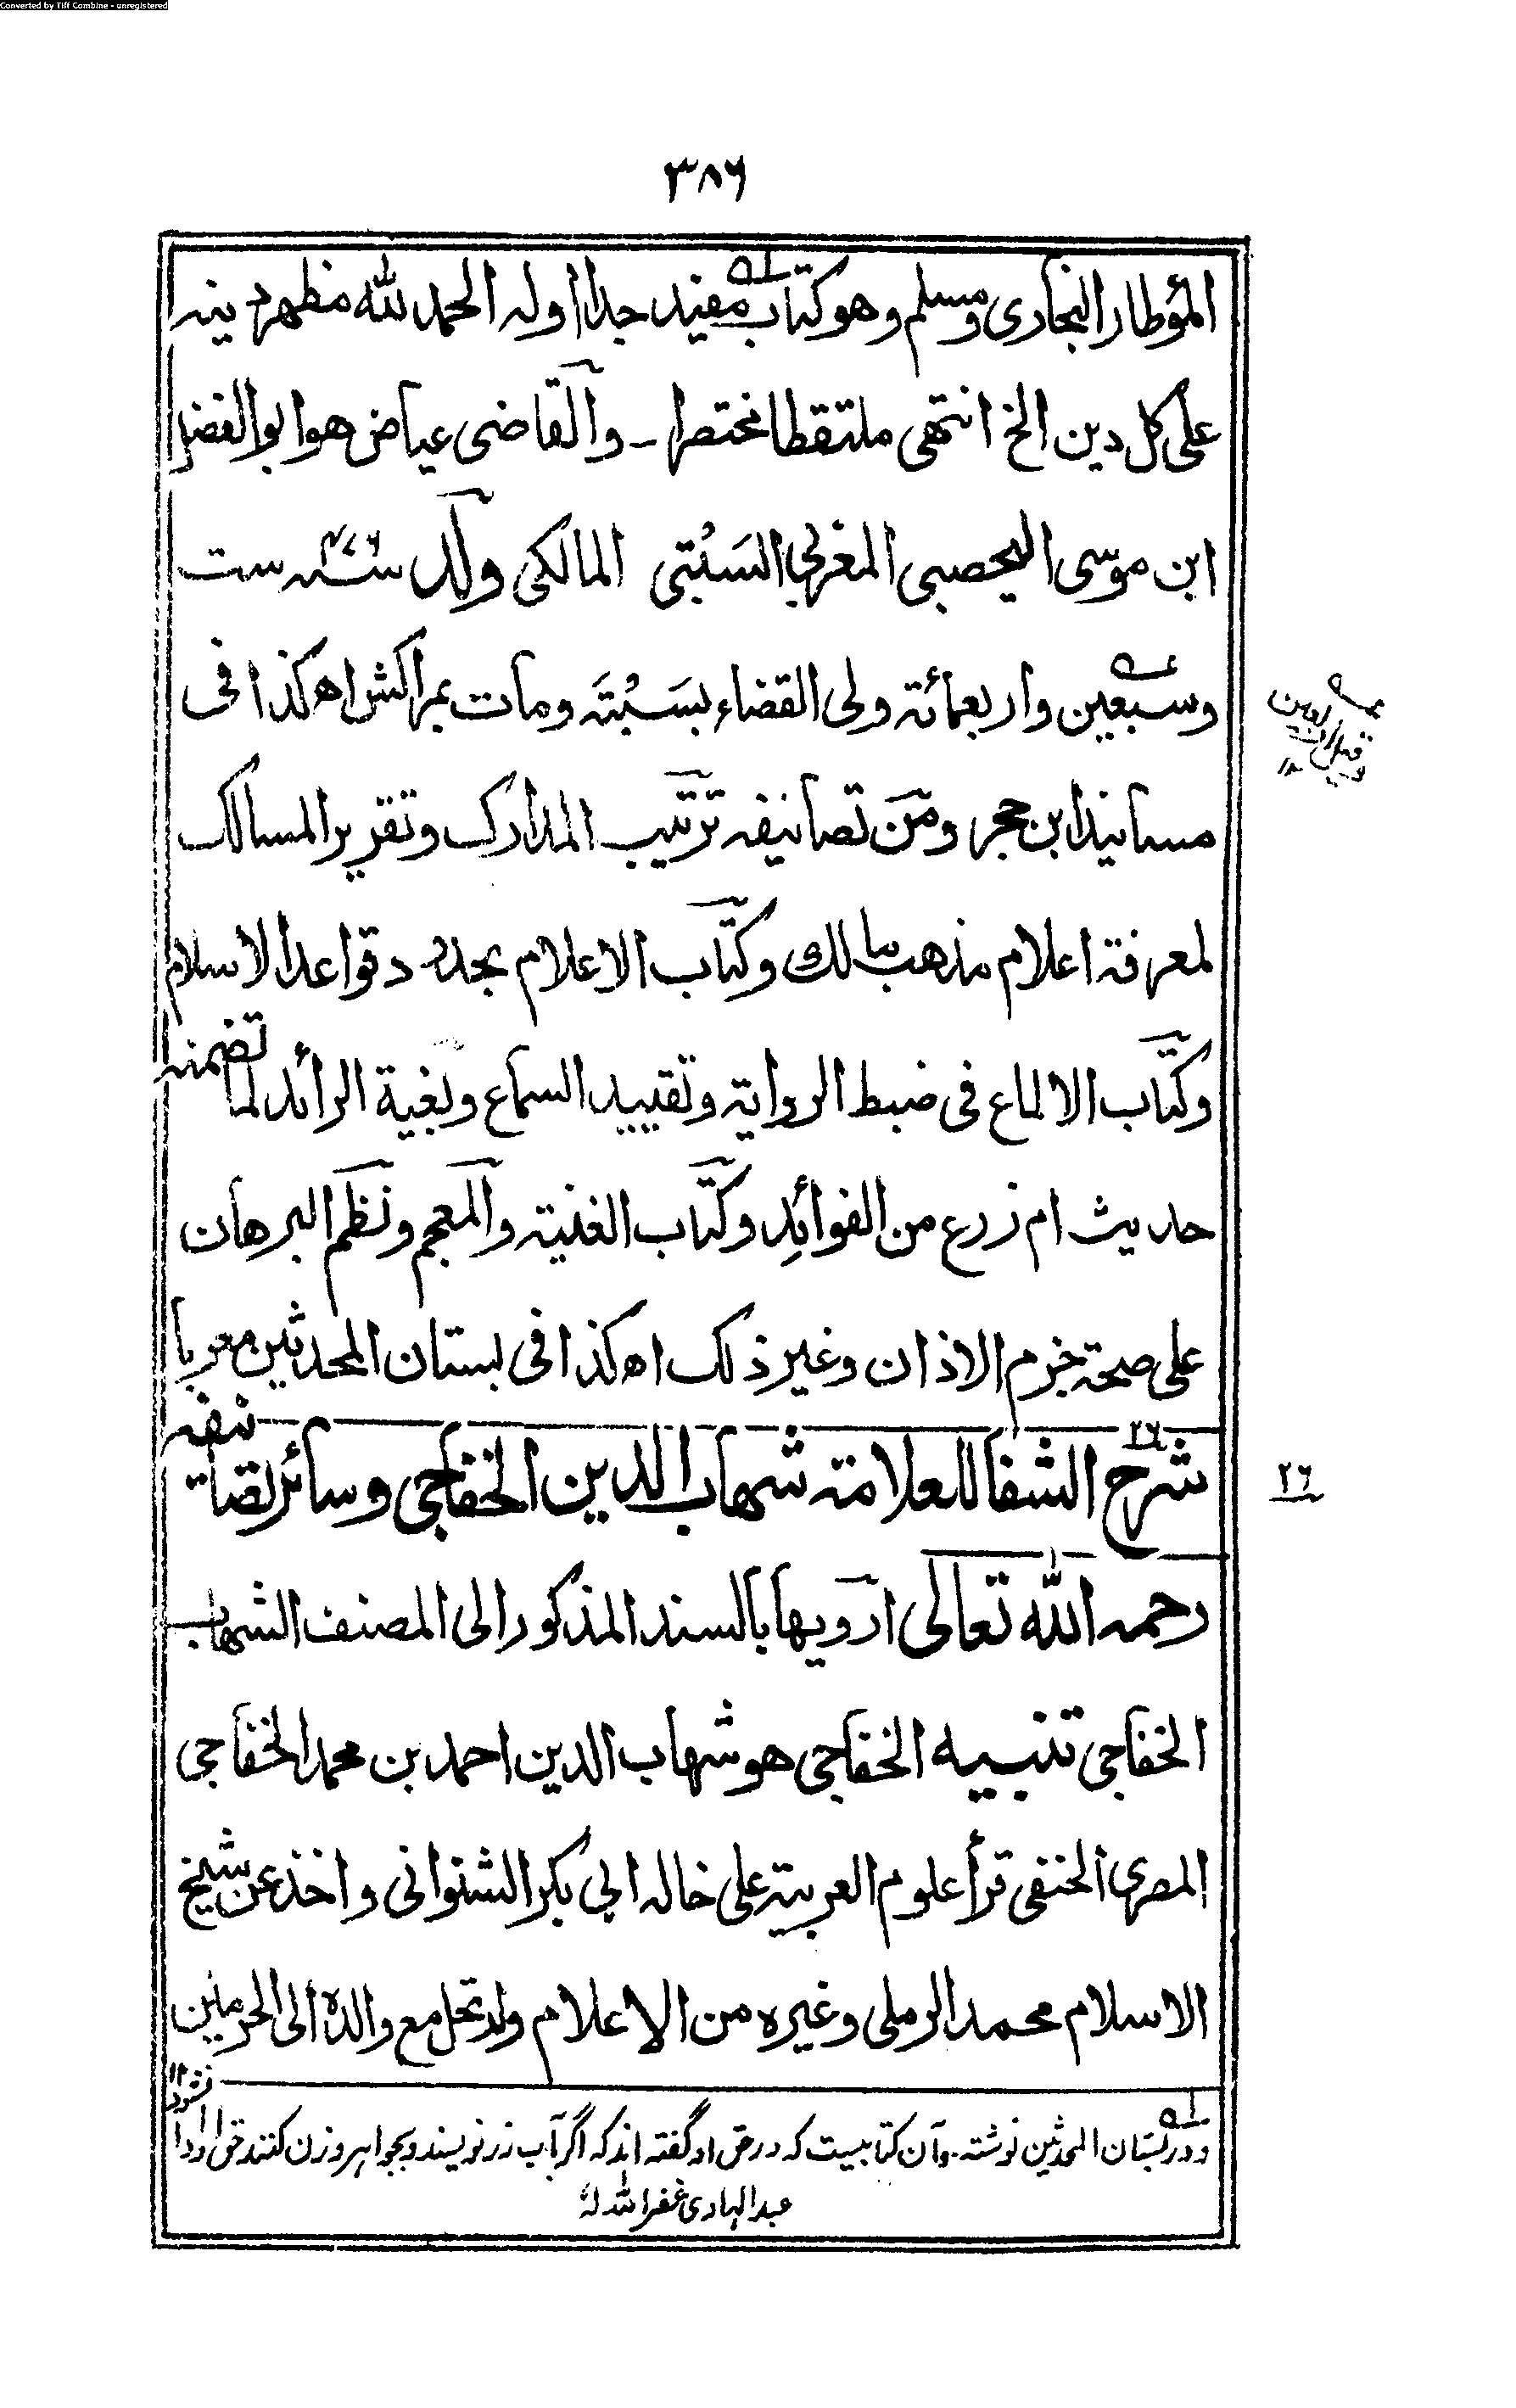 Converted by Tiff Combine - unregistered
۳۸۶
المؤطا والبخاری ومسلم وهو كتاب مفيد جدا اوله الحمد لله مظهر دينه
علی كل دين الخ انتهی ملتقطا مختصرا - والقاضی عياض هو ابو الفضل
ابن موسی اليحصبی المغربی السَبْتی المالكی ولد سنة ۴۷۶ ست
وسبعين واربعمائة ولی القضاء بسَبْتَة ومات بمراكش اه كذا فی
مسانيد ابن حجر ومن تصانيفه ترتيب المدارك وتقرير المسالك
لمعرفة اعلام مذهب مالك وكتاب الاعلام بحدود قواعد الاسلام
وكتاب الالماع فی ضبط الرواية وتقييد السماع وبغية الرائد لما تضمنه
حديث ام زرع من الفوائدِ وكتاب الغنية والمعجم ونظم البرهان
علی صحة جزم الاذان وغير ذلك اه كذا فی بستان المحدثين معربا
شرح الشفا للعلامة شهاب الدين الخفاجی وسائر تصانيفه
۲۶
رحمه الله تعالی ارويها بالسند المذكور الی المصنف الشهاب
الخفاجی تنبيه الخفاجی هو شهاب الدين احمد بن محمد الخفاجی
المصری الحنفی قرأ علوم العربية علی خاله ابی بكر الشنوانی واخذ عن شيخ
الاسلام محمد الرملی وغيره من الاعلام وارتحل مع والده الی الحرمين
ودر بستان المحدثين نوشته وآن كتابيست كه در حق او گفته اند كه اگر آب زر نويسند وبجواهر وزن كنند حق او ادا نشود ۱۲
عبد الهادی غفر الله له